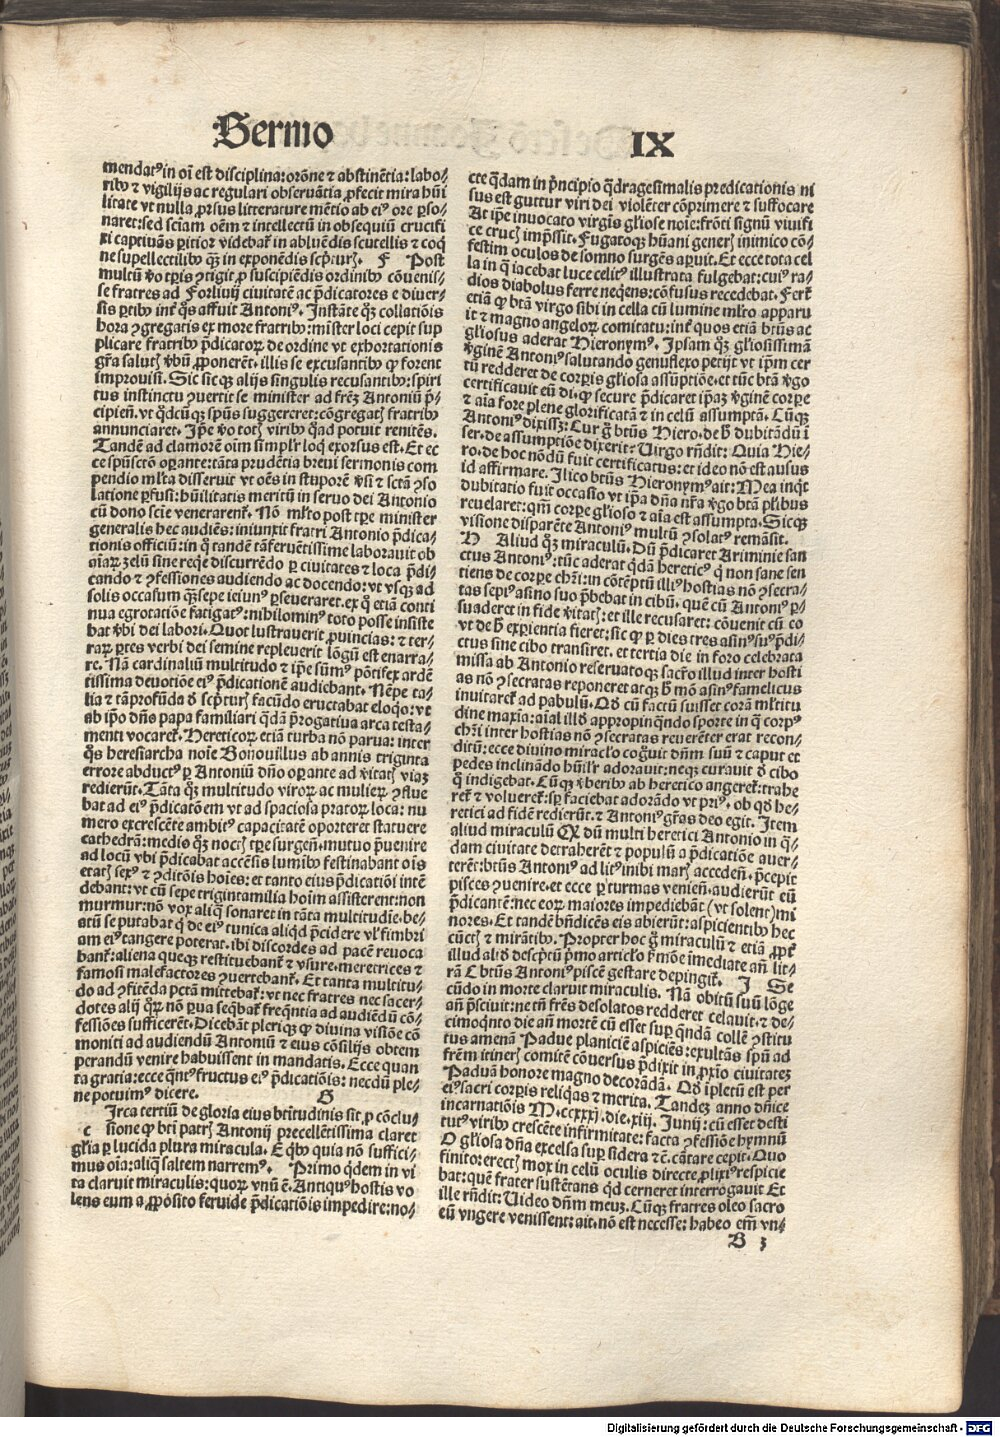 Sermo IX
mendatꝰ in oī est disciplina: orōne ⁊ abstinētia: labo⸗
ribꝰ ⁊ vigilijs ac regulari obseruātia ꝓfecit mira hūi
litate vt nulla ꝓrsus litterature mētio ab eiꝰ ore ꝑso⸗
naret: sed sciam oēm ⁊ intellectū in obsequiū crucifi
xi captiuās ꝑitior videbat̄ in abluēdis scutellis ⁊ coq̄
ne supellectilibꝰ qꝫ in exponēdis scṗturꝭ. F Post
multū ꝟo tꝑis ꝯtigit ꝓ suscipiēdis ordinibꝰ cōuenis⸗
se fratres ad Forliuij ciuitatē ac p̄dicatores e diuer⸗
sis ꝑtibꝰ int̄ qͦs affuit Antoniꝰ. Instāte qꝫ collatiōis
hora ꝯgregatis ex more fratribꝰ: mīster loci cepit sup
plicare fratribꝰ p̄dicatoꝝ de ordine vt exhortationis
gr̄a salutꝭ ꝟbū ꝓponerēt. illis se excusantibꝰ ꝙ forent
improuisi. Sic sicqꝫ alijs singulis recusantibꝰ: spiri
tus instinctu ꝯuertit se minister ad frēꝫ Antoniū p̄⸗
cipieñ. vt qd̄cūqꝫ spūs suggereret: cōgregatꝭ fratribꝰ
annunciaret. Ip̄e ꝟo totꝭ viribꝰ qͣad potuit renitēs.
Tandē ad clamorē oīm simpl'r loq̄ exorsus est. Et ec
ce spūsctō oꝑante: tāta prudētia breui sermonis com
pendio ml̄ta disseruit vt oēs in stuporē ꝟsi ⁊ sctā ꝯso
latione ꝑfusi: hūilitatis meritū in seruo dei Antonio
cū dono scīe venerarent̄. Nō ml̄to post tꝑe minister
generalis hec audiēs: iniunxit fratri Antonio p̄dica⸗
tionis officiū: in qͦ tandē tā feruētissime laborauit ob
aīaꝝ zelū sine reqͥe discurrēdo ꝑ ciuitates ⁊ loca p̄di⸗
cando ⁊ ꝯfessiones audiendo ac docendo: vt vsqꝫ ad
solis occasum qͣꝫ sepe ieiunꝰ ꝑseueraret. ex qͦ etiā conti
nua egrotatiōe fatigatꝰ: nihilominꝰ toto posse insiste
bat ꝟbi dei labori. Quot lustrauerit ꝓuincias: ⁊ ter⸗
raꝝ ꝑtes verbi dei semine repleuerit lōgū est enarra⸗
re. Nā cardinaliū multitudo ⁊ ip̄e sūmꝰ pōtifex ardē
tissima deuotiōe eiꝰ p̄dicationē audiebant. Nēpe ta⸗
lia ⁊ tā ꝓfūda ō scṗturꝭ facūdo eructabat eloqͦ: vt
ab ip̄o dño papa familiari qͣdā p̄rogatiua arca testa⸗
menti vocaret̄. Hereticoꝝ etiā turba nō parua: inter
qͦs heresiarcha noīe Bonouillus ab annis triginta
errore abductꝰ ꝑ Antoniū dño oꝑante ad ꝟitatꝭ viaꝫ
redierūt. Tāta qꝫ multitudo viroꝝ ac mulieꝝ ꝯflue
bat ad eiꝰ p̄dicatōem vt ad spaciosa pratoꝝ loca: nu
mero excrescēte ambitꝰ capacitatē oporteret statuere
cathedrā: medio qꝫ noctꝭ tꝑe surgeñ. mutuo p̄uenire
ad locū vbi p̄dicabat accēsis lumībꝰ festinabant oīs
etatꝭ sexꝰ ⁊ ꝯditōis hoīes: et tanto eius p̄dicatiōi intē
debant: vt cū sepe triginta milia hoīm assisterent: non
murmur: nō vox aliqͣ sonaret in tāta multitudīe. be⸗
atū se putabat qͥ de eiꝰ tunica aliqd̄ p̄cidere vl' fimbri
am eiꝰ tangere poterat. ibi discordes ad pacē reuoca
bant̄: aliena queqꝫ restituebant̄ ⁊ vsure. meretrices ⁊
famosi malefactores ꝯuertebant̄. Et tanta multitu⸗
do ad ꝯfitēda pctā mittebat̄: vt nec fratres nec sacer⸗
dotes alij qͦꝝ nō ꝑua seq̄bat̄ freq̄ntia ad audiēdū cō⸗
fessiōes sufficerēt. Dicebāt pleriqꝫ ꝙ diuina visiōe cō
moniti ad audiendū Antoniū ⁊ eius cōsilijs obtem
perandū venire habuissent in mandatis. Ecce quan
ta gratia: ecce qͣntꝰ fructus eiꝰ p̄dicatiōis: necdū ple⸗
ne potuimꝰ dicere. G
Irca tertiū de gloria eius b̄titudinis sit ꝓ cōclu⸗
c sione ꝙ bti patrꝭ Antonij precellētissima claret
gl'ia ꝑ lucida plura miracula. E qͥbꝰ quia nō suffici⸗
mus oīa: aliqͣ saltem narremꝰ. Primo qͥdem in vi
ta claruit miraculis: quoꝝ vnū ē. Antiquꝰ hostis vo
lens eum a ꝓposito feruide p̄dicatiōis impedire: no⸗
cte qͣdam in pͥncipio qͣdragesimalis predicationis ni
sus est guttur viri dei violēter cōprimere ⁊ suffocare
At ip̄e inuocato virgīs gl'iose noīe: frōti signū viuifi
ce crucꝭ imp̄ssit. Fugatoqꝫ hūani generꝭ inimico cō⸗
festim oculos de somno surgēs aꝑuit. Et ecce tota cel
la in qͣ iacebat luce celitꝰ illustrata fulgebat: cuiꝰ ra⸗
dios diabolus ferre neqͥens: cōfusus recedebat. Fert̄
etiā ꝙ btā virgo sibi in cella cū lumine ml̄to apparu
it ⁊ magno angeloꝝ comitatu: int̄ quos etiā btūs ac
gl'iosus aderat Hieronymꝰ. Ipsam qꝫ gl'iosissimā
ꝟginē Antoniꝰ salutando genuflexo petijt vt ip̄m cer
tū redderet de corꝑis gl'iosa assūptiōe. et tūc btā ꝟgo
certificauit eū dī. ꝙ secure p̄dicaret ip̄aꝫ ꝟginē corꝑe
⁊ aīa fore plene glorificatā ⁊ in celū assumptā. Cūqꝫ
Antoniꝰ dixissꝫ: Cur ḡ btūs Hiero. de h̄ dubitādū ī
ser. de assumptiōe dixerit: Virgo rn̄dit: Quia Hie⸗
ro. de hoc nōdū fuit certificatus: et ideo nō est ausus
id affirmare. Ilico btūs Hieronymꝰ ait: Mea inqͥt
dubitatio fuit occasio vt ip̄a dña nr̄a ꝟgo btā plͥbus
reuelaret: qm̄ corꝑe gl'ioso ⁊ aīa est assumpta. Sicqꝫ
visione disparēte Antoniꝰ multū ꝯsolatꝰ remāsit.
H Aliud qꝫ miraculū. Dū p̄dicaret Arimīne san
ctus Antoniꝰ: tūc aderat qͥdā hereticꝰ qͥ non sane sen
tiens de corꝑe chr̄i: in cōtēptū illiꝰ hostias nō ꝯsecra⸗
tas sepiꝰ asino suo p̄bebat in cibū. quē cū Antoniꝰ ꝑ⸗
suaderet in fide ꝟitatꝭ: et ille recusaret: cōuenit cū eo
vt de h̄ exꝑientia fieret: sic ꝙ ꝑ dies tres asinꝰ suꝰ p̄di⸗
ctus sine cibo transiret. et tertia die in foro celebrata
missa ab Antonio reseruatoqꝫ sacr̄o illud inter hosti
as nō ꝯsecratas reponeret atqꝫ h̄ mō asinꝰ famelicus
inuitaret̄ ad pabulū. Qd̄ cū factū fuisset corā ml̄titu
dine maxīa: aīal illd̄ appropinqͣndo sporte in qͣ corpꝰ
chr̄i inter hostias nō ꝯsecratas reuerēter erat recon⸗
ditū: ecce diuino miracl'o cogͦuit dn̄m suū ⁊ caput et
pedes inclināndo hūil'r adorauit: neqꝫ curauit ō cibo
qͦ indigebat. Cūqꝫ ꝟberibꝰ ab heretico angeret̄: trahe
ret̄ ⁊ volueret̄: sp̄ faciebat adorādo vt priꝰ. ob qd̄ he⸗
retici ad fidē redierūt. ⁊ Antoniꝰ gr̄as deo egit. Item
aliud miraculū Qꝫ dū multi heretici Antonio in qͣ⸗
dam ciuitate detraherēt ⁊ populū a p̄dicatiōe auer⸗
terēt: btūs Antoniꝰ ad litꝰ inibi marꝭ accedeñ. p̄cepit
pisces ꝯuenire. et ecce ꝑ turmas venieñ. audierūt eū
p̄dicantē: nec eoꝝ maiores impediebāt (vt solent) mi
nores. Et tandē bn̄dicēs eis abierūt: aspicientibꝰ hec
cūctꝭ ⁊ mirātibꝰ. Propter hoc ḡ miraculū ⁊ etiā ꝓpt̄
illud aliō descṗtū p̄mo articl'o f̄mōe imediate añ lit⸗
rā C btūs Antoniꝰ piscē gestare depingit̄. I Se
cūdo in morte claruit miraculis. Nā obitū suū lōge
añ p̄sciuit: ne tñ frēs desolatos redderet celauit. ⁊ de⸗
cimoqͥnto die añ mortē cū esset suꝑ qͦndā collē ꝯstitu
tus amenā Padue planiciē aspiciēs: exultās spū ad
frēm itinerꝭ comitē cōuersus p̄dixit in ꝓxīo ciuitateꝫ
Paduā honore magno decorādā. Qd̄ īpletū est per
eiꝰ sacri corꝑis reliqͥas ⁊ merita. Tandeꝫ anno dñice
incarnatiōis M. ccxxxj. die. xiij. Junij: cū esset desti
tutꝰ viribꝰ crescēte infirmitate: facta ꝯfessiōe hymnū
O gl'iosa dña excelsa suꝑ sidera ⁊c. cātare cepit. Quo
finito: erectꝭ mox in celū oculis directe ꝓlixiꝰ respicie
bat: quē frater sustētans qd̄ cerneret interrogauit Et
ille rn̄dit: Video dn̄m meuꝫ. Cūqꝫ fratres oleo sacro
eū vngere venissent: ait. nō est necesse: habeo em̄ vn⸗
B 3
Digitalisierung gefördert durch die Deutsche Forschungsgemeinschaft - DFG